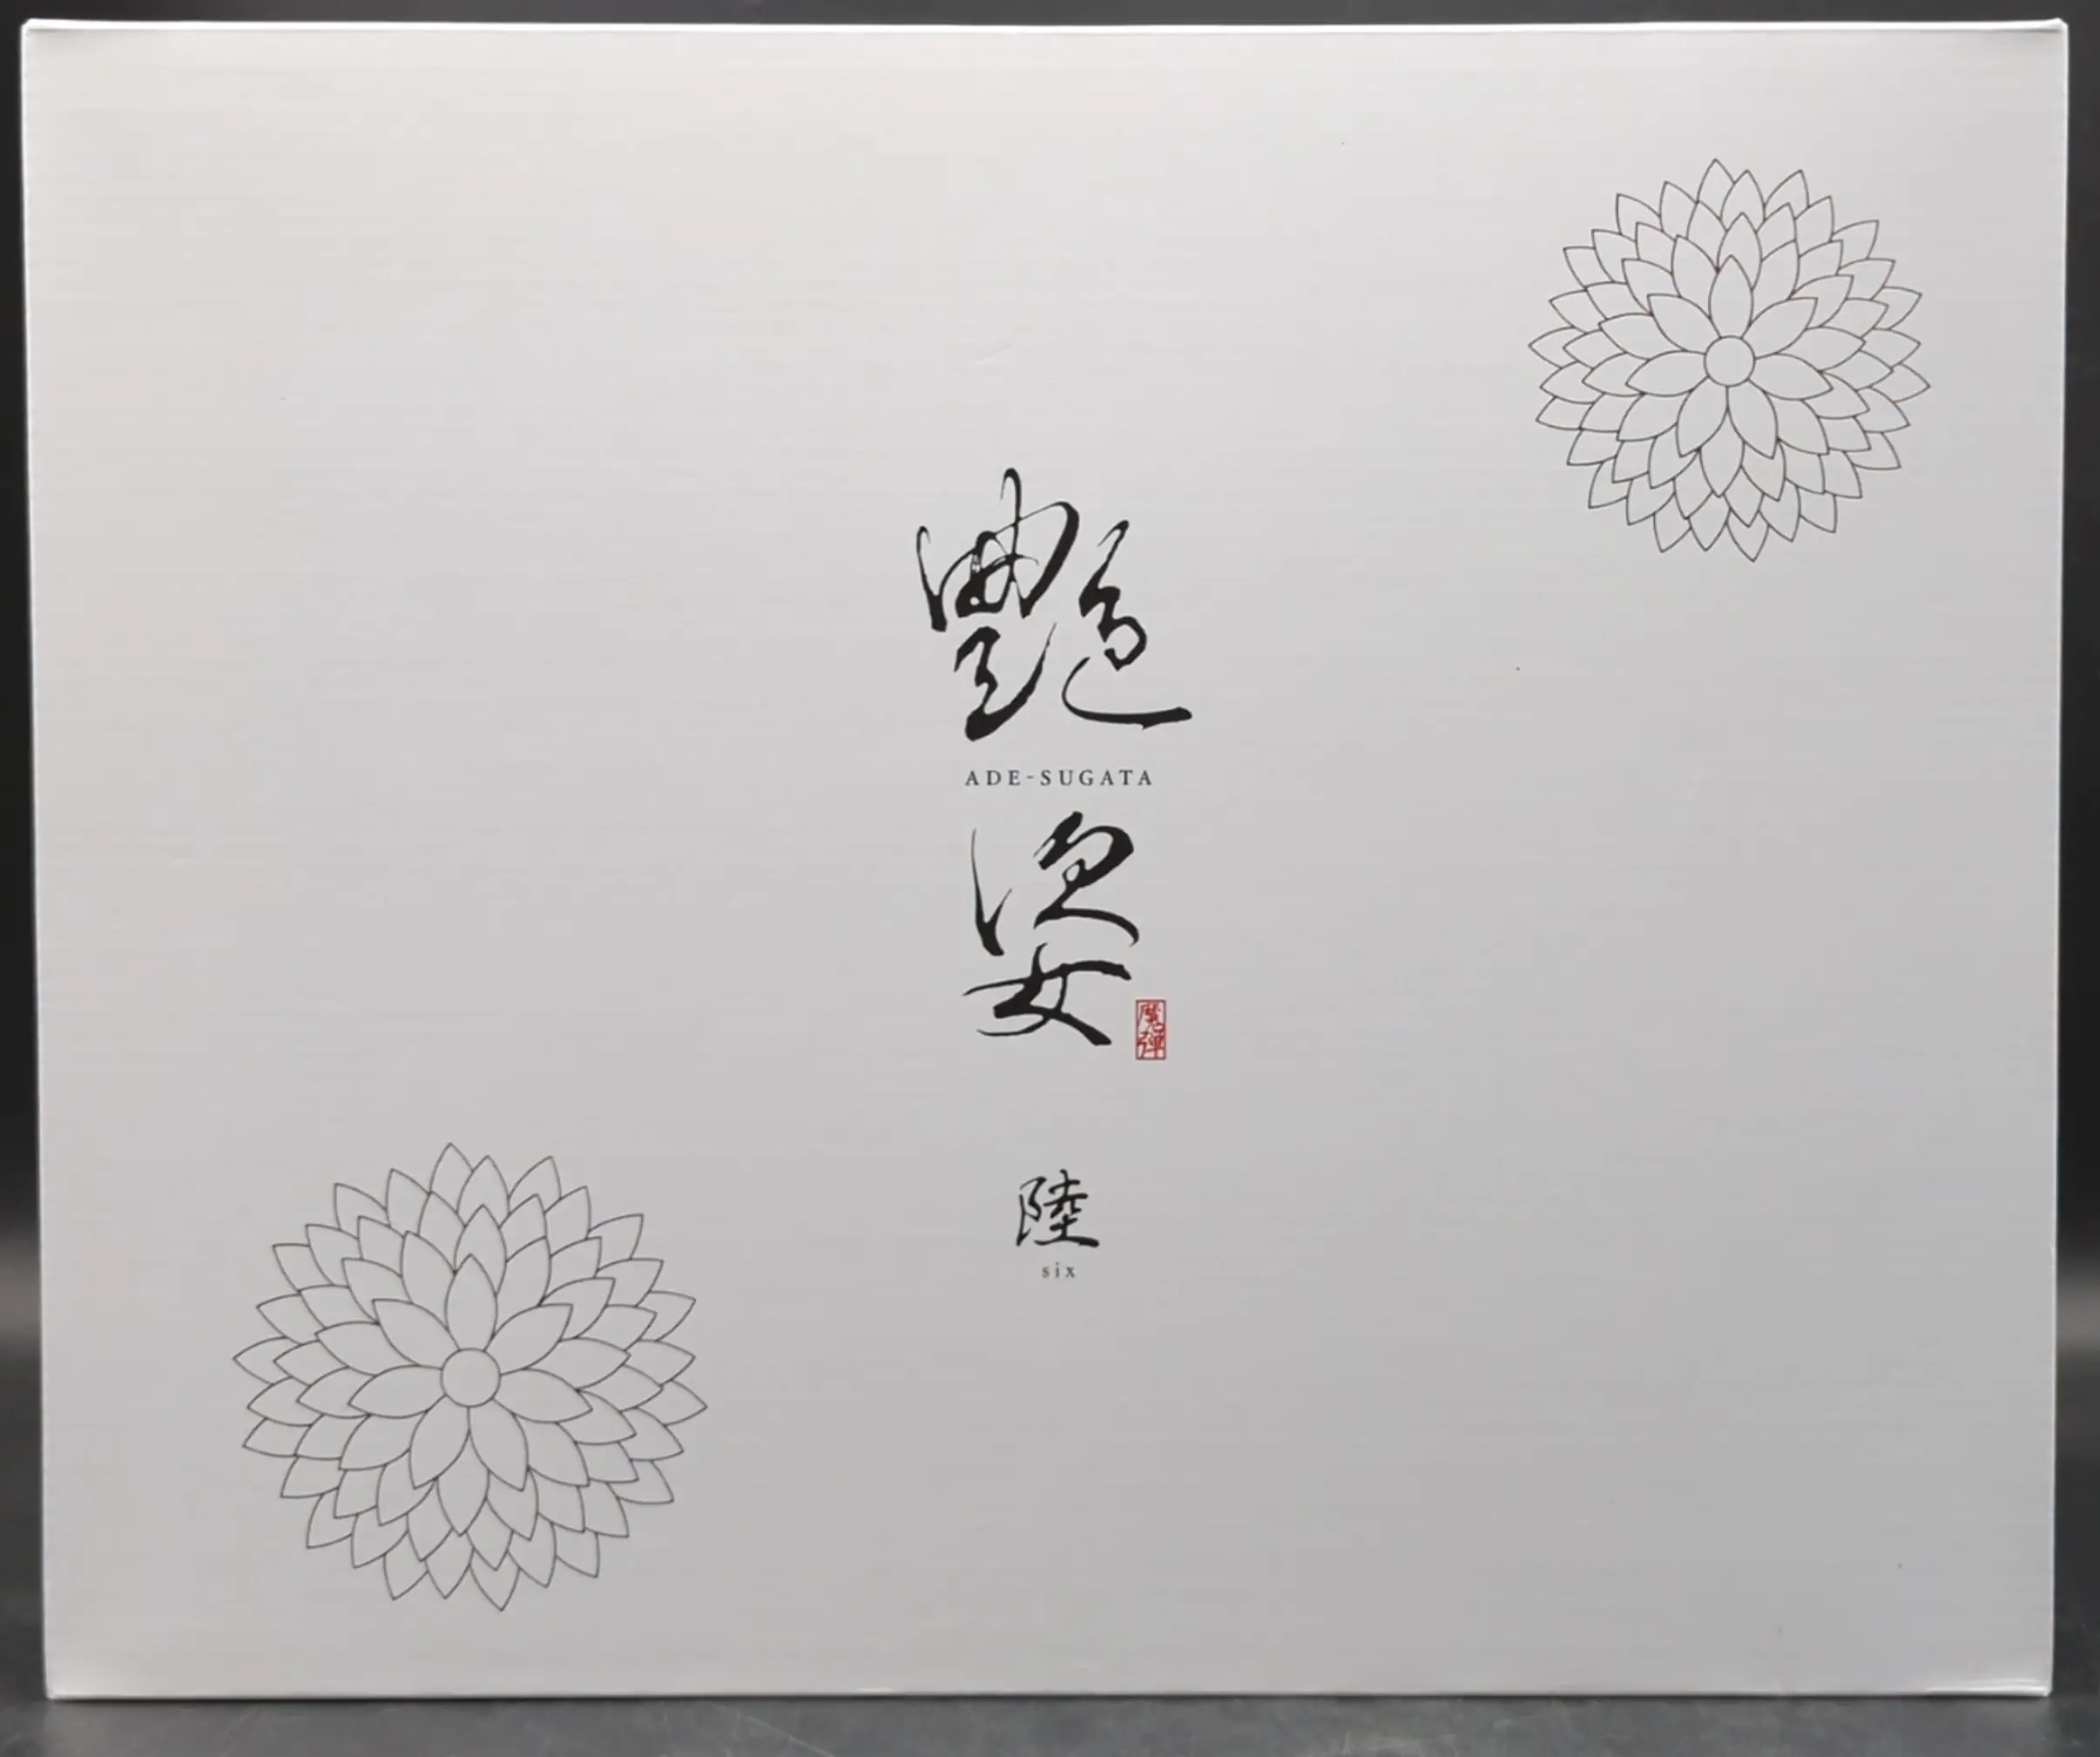 艶
ADE-SUGATA
姿
陸
six